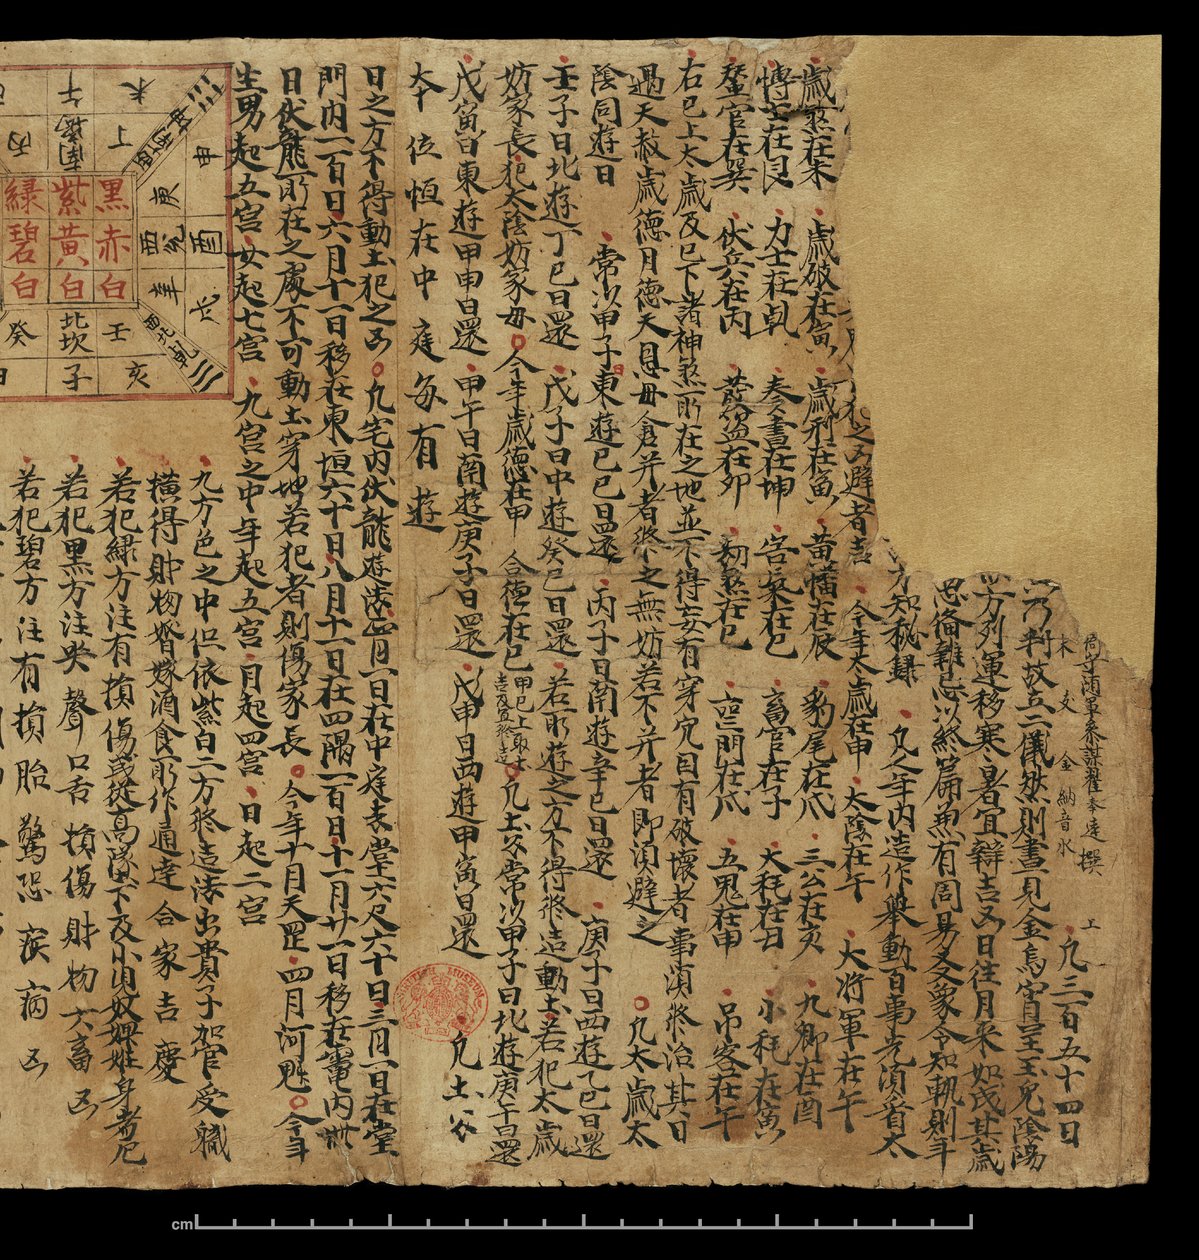 守隨軍參謀翟奉達 撰
木 支 金 納音水 凡三百五十四日
乃判故立二儀然則晝見金烏宵呈玉兔陰陽
方列運移寒暑宜辯吉凶日往月來如茂其歲
思俻難忘以終篇無有周易爻象令知軌則年
方知秘録 凡人年內造作舉動百事先須看太
犯之凶避者吉 今年太歲在申 太陰在午 大將軍在午
歲煞在未 歲破在寅 歲刑在寅 黃幡在辰 豹尾在戌 三公在亥 九卿在酉
博士在艮 力士在乹 奏書在坤 害氣在巳 畜官在子 大耗在 小耗在寅
蠶官在巽 伏兵在丙 在卯 刼煞在巳 喪門在戌 五鬼在申 吊客在午
右已上太歲及已下諸神煞所在之地並不得妄有穿穴自有破壞者事須修治其日
過天赦歲德月德天恩母倉并者修之無妨若不并者即須避之 凡太歲太
陰同遊日 常以甲子日東遊己巳日還 丙子日南遊辛巳日還 庚子日西遊乙巳日還
壬子日北遊丁巳日還 戊子日中遊癸巳日還 若所遊之方不得修造動土若犯太歲
妨家長犯太陰妨家母 今年歲德在甲 合德在己 甲己上取土吉及宜修造 凡土公常以甲子日北遊庚午日還
戊寅日東遊甲申日還 甲午日南遊庚子日還 戊申日西遊甲寅日還 凡土公
本位恒在中庭每有遊
日之方不得動土犯之凶 凡宅內伏龍遊法正月一日在中庭去堂六尺六十日三月一日在堂
門內一百日六月十一日移在東垣六十日八月十一日在四隅一百日十一月廿一日移在竈內卌
日伏龍所在之處不可動土穿地若犯者則傷家長 今年十月天罡四月河魁 今年
生男起五宮女起七宮 九宮之中年起五宮月起四宮日起二宮
九方色之中但依紫白二方修造法出貴子加官受職
橫得財物婚嫁酒食所作通達合家吉慶
若犯綠方注有損傷或從高墜下及小女奴婢妊身者厄
若犯黑方注哭聲口舌損傷財物六畜凶
若犯碧方注有損胎驚恐疾病凶
未 丁 午 南離 丙
西南坤 申 庚 酉 西兌 辛 戌 西北乹
黑 赤 白
紫 黃 白
綠 碧 白
亥 壬 子 北坎 癸
BRITISH MUSEUM
cm